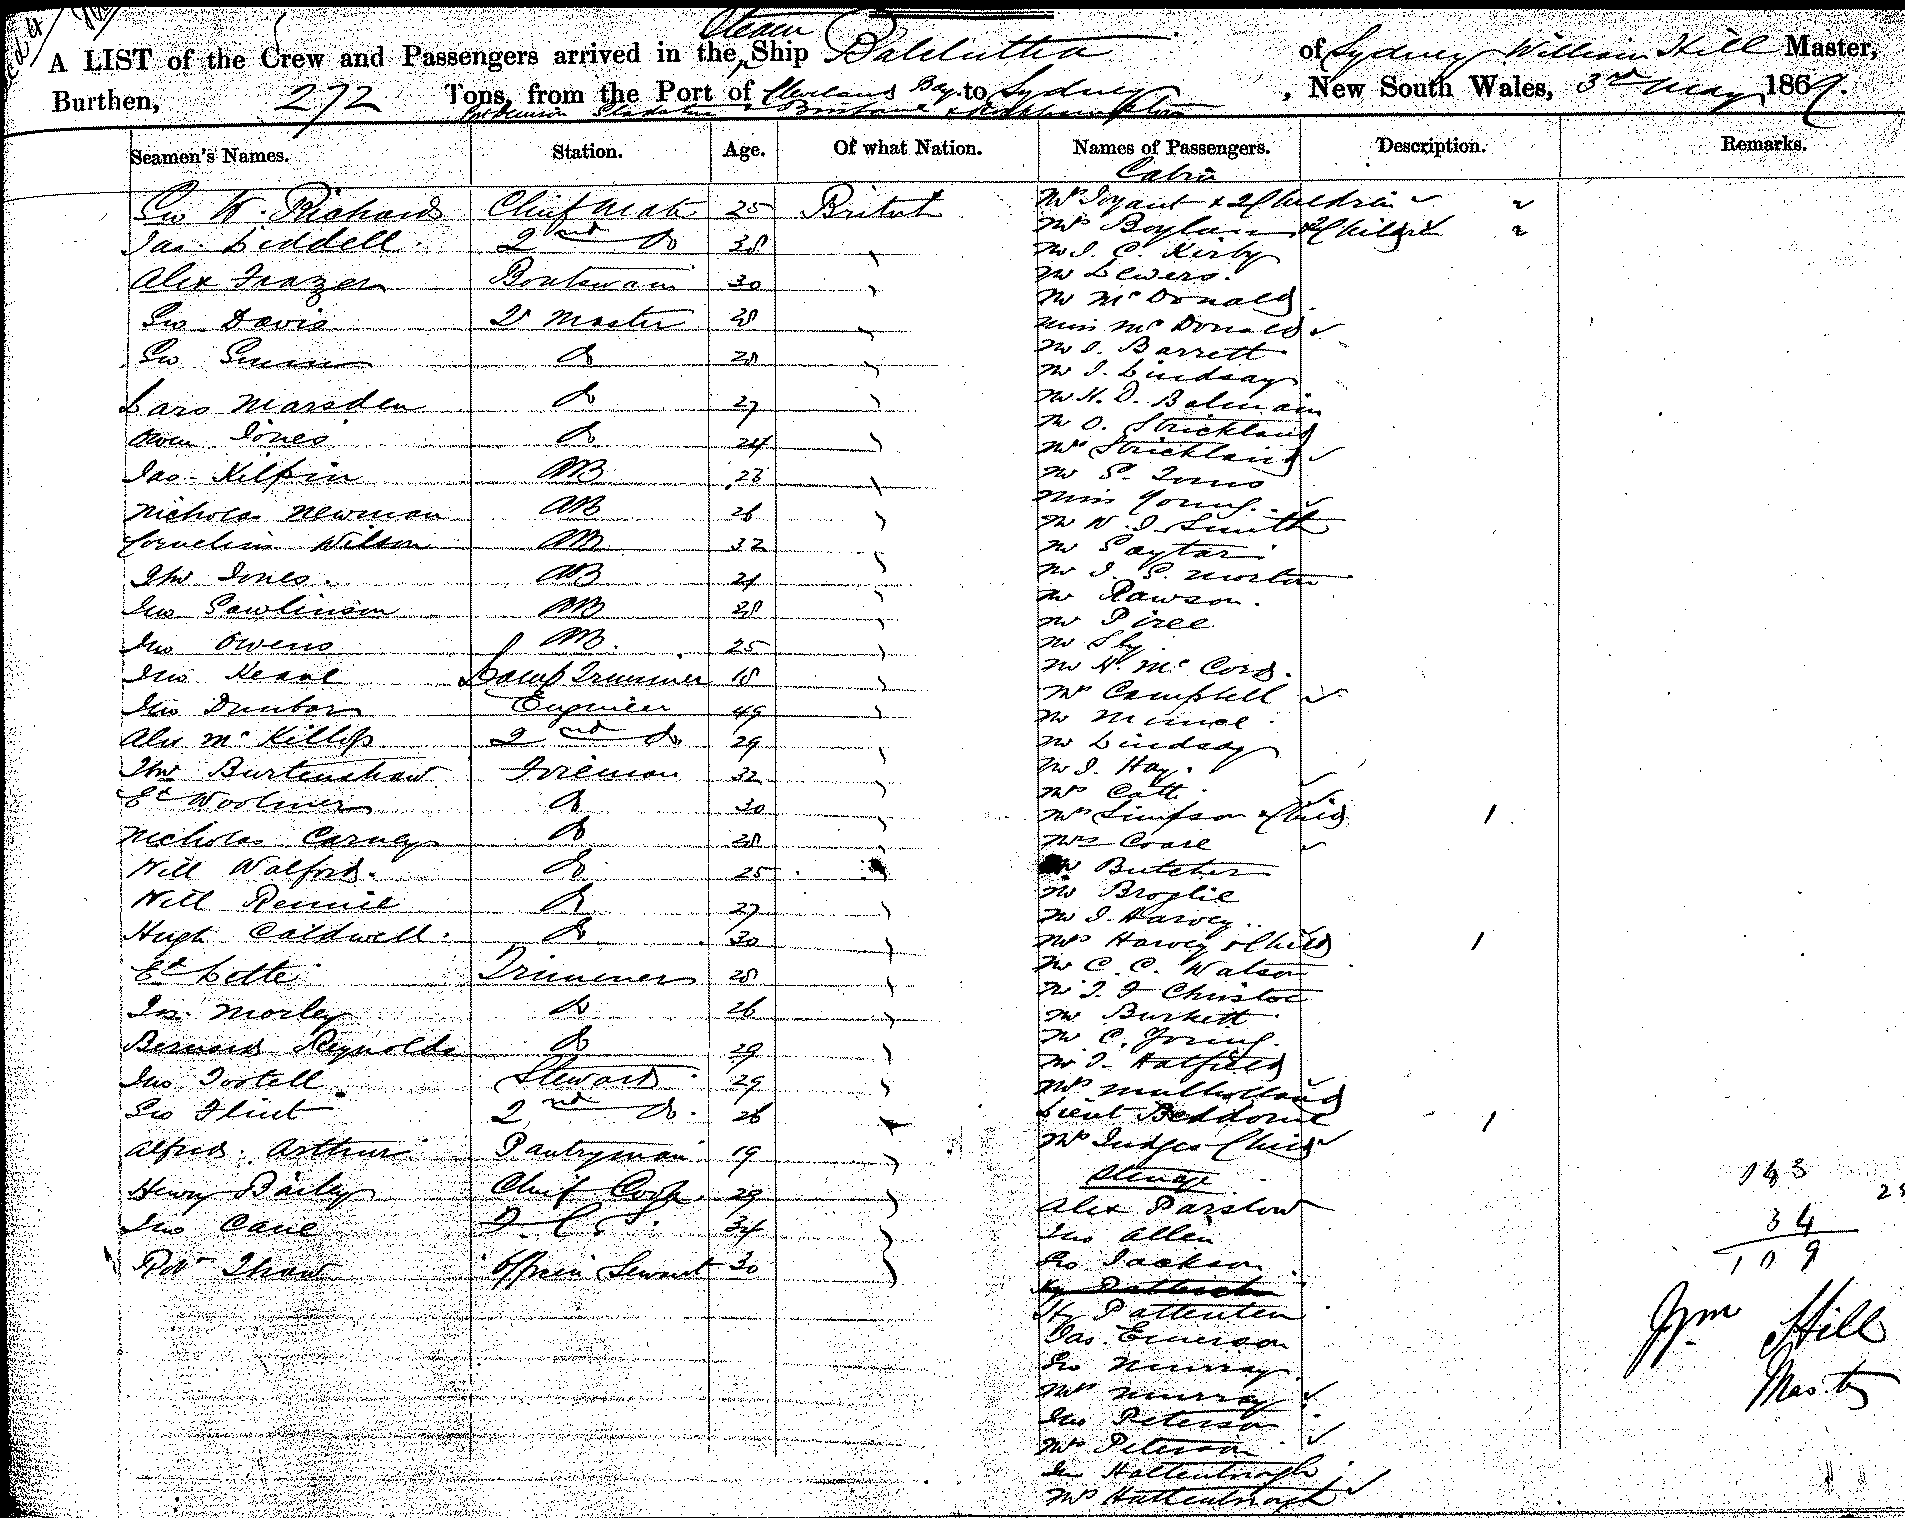 Steam
A LIST of the Crew and Passengers arrived in the Ship Balclutha of Sydney William Hill Master,
Burthen, 272 Tons, from the Port of Cleveland Bay to Sydney, New South Wales, 3rd May 1869.
Gladstone Brisbane & Rockhampton
Seamen's Names. Station. Age. Of what Nation. Names of Passengers. Description. Remarks.
Cabin
Geo W. Richards Chief Mate 25 British Mrs & 2 Children
Jas. Liddell 2nd Do 38 Mrs Boylan
Mr J. C. Kirby
Alex Frazer Boatswain 30 Mr Lewers.
Mr McDonald
Geo Davis Qr Master 28 Miss McDonald
Geo Do 28 Mr J. Barrett
Mr J. Lindsay
Lars Marsden Do 27 Mr H. D. Balmain
Owen Jones Do 24 Mr O. Strickland
Mrs Strickland
Jas. Kilpin AB 28 Mr S. Jones
Miss Young
Nicholas Newman AB 26 Mr W. J. Smith
Cornelius Wilson AB 32 Mr
Thos Jones. AB 21 Mr J. S. Morton
Mr Rawson.
Jno Rawlinson AB 28 Mr
Jno Owens AB. 25 Mr Sly
Mr H. McCord.
Jno Keane Lamp Trimmer 18 Mrs Campbell
Jno Dunbar Engineer 49 Mr
Alex McKillop 2nd Do 29 Mr Lindsay
Thos Burtenshaw Fireman 32 Mr J. Hay.
Mrs Catt
Ed Woolmer Do 30 Mrs Simpson & Child 1
Nicholas Carney Do 28 Mrs Coare
Will Walford. Do 25 Mr Butcher
Mr Broglie
Will Rennie Do 27 Mr J. Harvey
Hugh Caldwell. Do 30 Mrs Harvey & Child 1
Mr C. C. Watson
Ed Trimmer 28 Mr J. F Christoe
Jas. Morley Do 26 Mr Burkett
Mr C. Young.
Bernard Reynolds Do 29 Mr J. Hatfield
Jno Tootell Steward 29 Mrs Mulholland
Geo Flint 2nd Do. 26 Lieut Beddome
Mrs Judges Child 1
Alfred Arthur Pantryman 19
Steerage
Henry Bailey Chief Cook 29 Alex Parslow
Jno Cane 2 C. 34 Jno Allen
Robt Shaw Officers Servant 30 Geo Jackson
Hy Pattenten
Jas. Emerson
Geo Murray
Mrs Murray
Jno Peterson
Mrs Peterson
Jno Hattenbrough
Mrs Hattenbrough
34
109
Wm Hill
Master